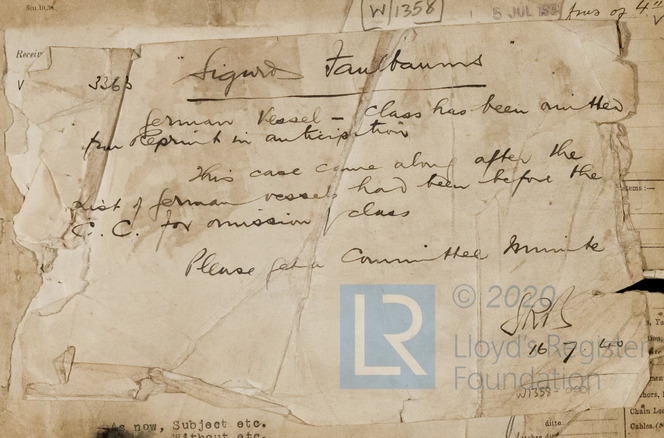 Sen.10,38.
W/1358
5 JUL 193
of 4"
Receiv
v
3363
"Sigurd Faulbaums"
German Vessel – Class has been omitted
from Reprint in anticipation
This case came along after the
List of German vessels had been before the
C.C. for omission of class
Please get a Committee Minute
SRB
16 7 40
© 2020
LR
Lloyd's Register
Foundation
W1358-
As now, Subject etc.
Without etc.
ems :—
Chain Loc
Cables.
ditto